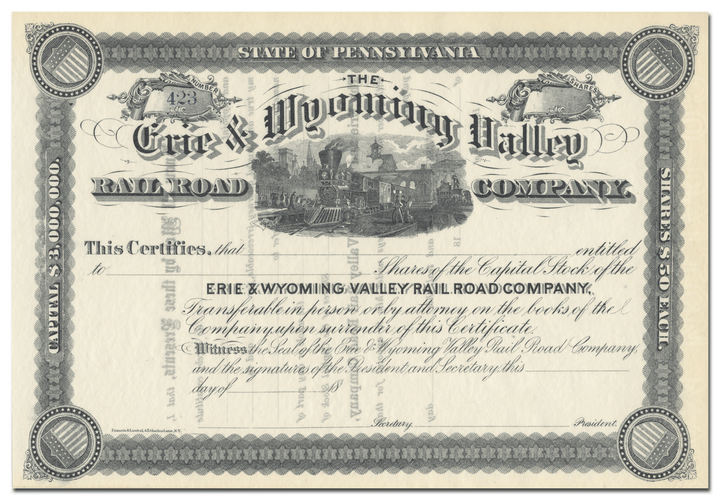 STATE OF PENNSYLVANIA
NUMBER
423
SHARES
THE
Erie & Wyoming Valley
RAIL ROAD COMPANY.
CAPITAL $3,000,000.
SHARES $50 EACH.
This Certifies, that entitled
to Shares of the Capital Stock of the
ERIE & WYOMING VALLEY RAIL ROAD COMPANY,
Transferable in person or by attorney on the books of the
Company, upon surrender of this Certificate.
Witness the Seal of the Erie & Wyoming Valley Rail Road Company,
and the signatures of the President and Secretary this
day of 18
Secretary. President.